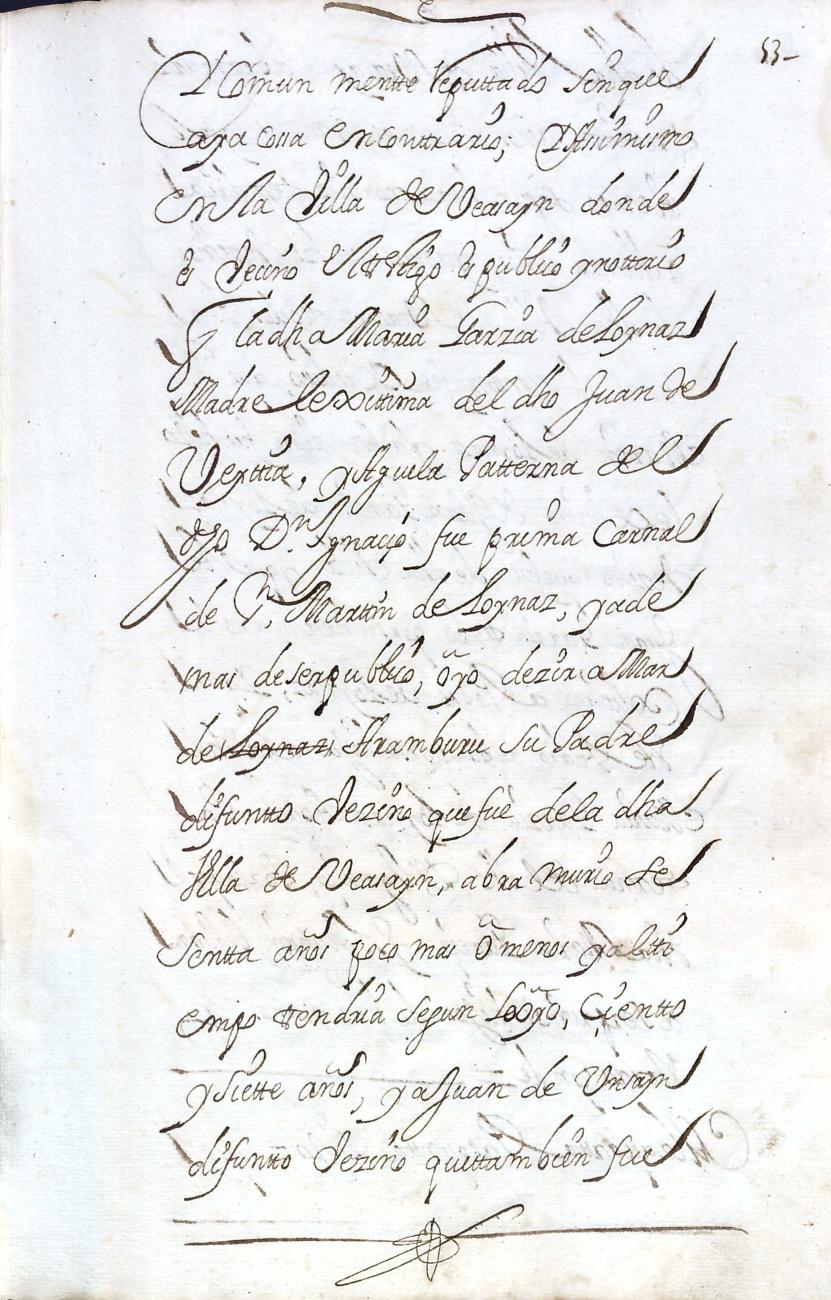 53-
Y Comun mentte Reputtado sin que
aya cossa en conttrario; Y Asimismo
en la Villa de Veasayn donde
es Vecino el testigo es publico y nottorio
q la dha Maria Garzia de Loynaz
Madre lexittima del dho Juan de
Veyttia, y Aguela Patterna del
dho Dn. Ygnacio fue prima Carnal
de Dn. Martin de Loynaz, y ade
mas de ser publico, oyo dezir a Mar
de Loynaz Aramburu su Padre
difuntto Vezino que fue de la dha
Villa de Veasayn, abra murio se
sentta años poco mas o menos y al tti
empo ttendria segun lo oyo, Cientto
y Siette años, y a Juan de Unsayn
difuntto Vezino que ttambien fue